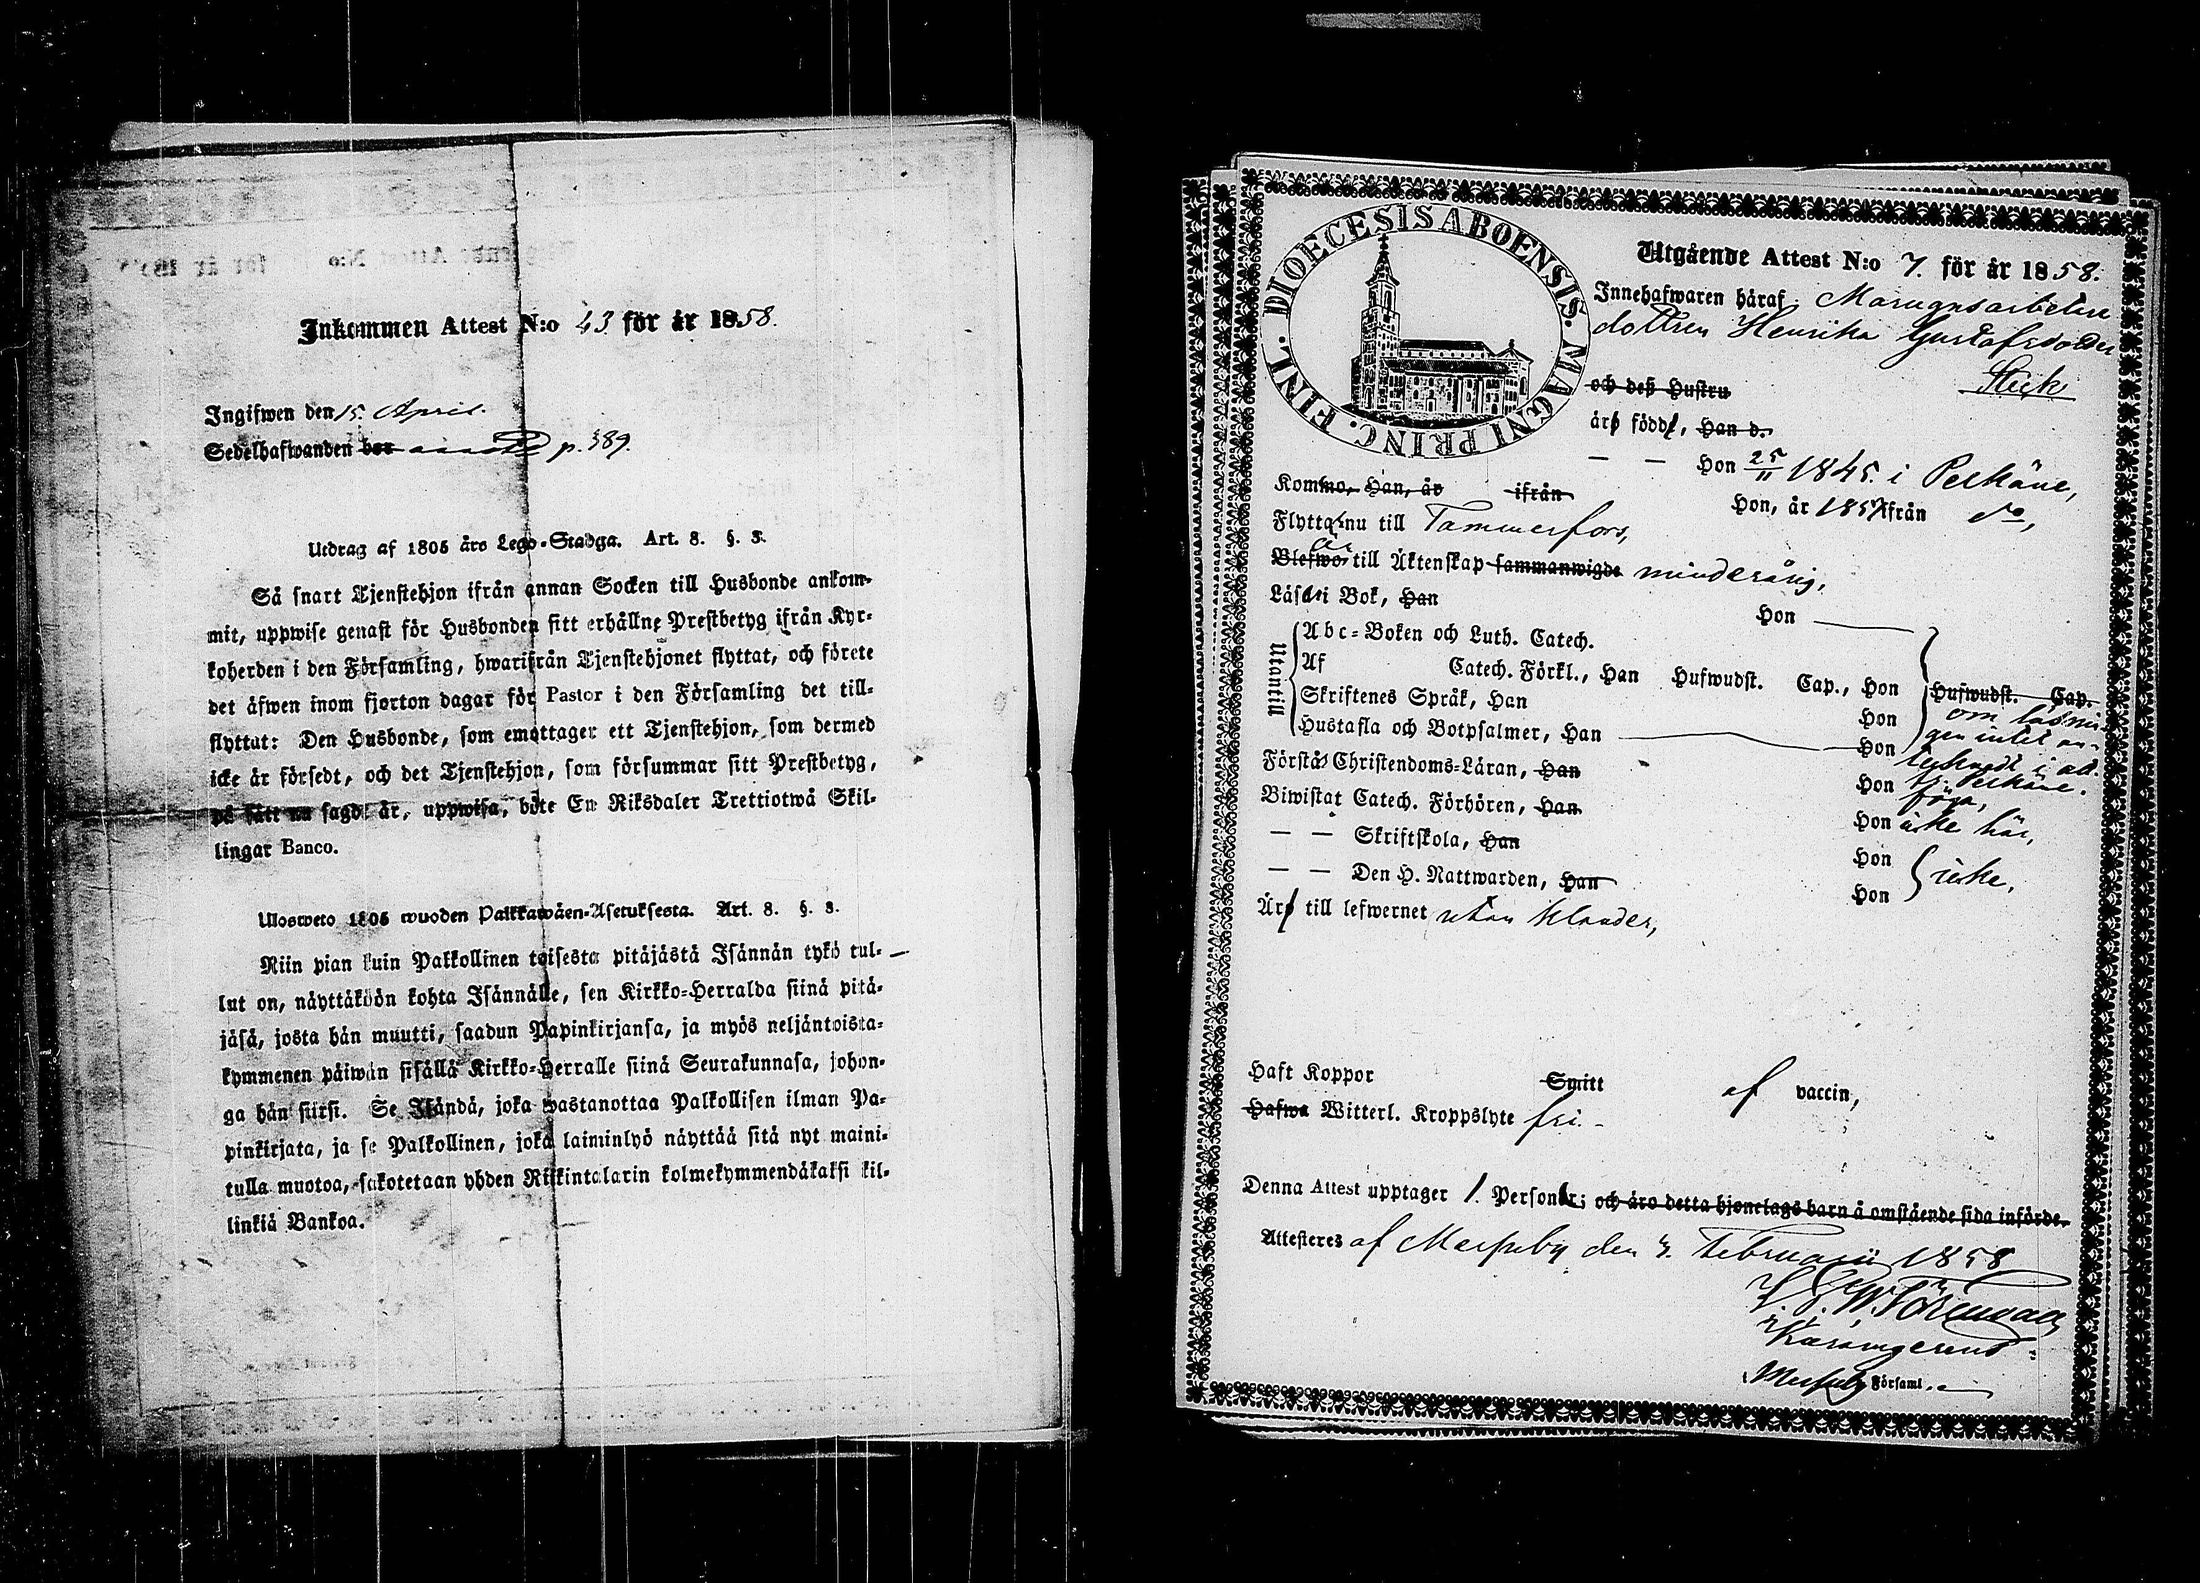 Inkommen Attest N:o 43 för år 1858.
Ingifwen den 15. April.
Sedelhafwanden bor p. 389.
Utdrag af 1805 års Lego-Stadga. Art. 8. §. 3.
Så snart Tjenstehjon ifrån annan Socken till Husbonde ankom-
mit, uppwise genast för Husbonden sitt erhållne Prestbetyg ifrån Kyr-
koherden i den Församling, hwarifrån Tjenstehjonet flyttat, och förete
det äfwen inom fjorton dagar för Pastor i den Församling det till-
flyttat: Den Husbonde, som emottager ett Tjenstehjon, som dermed
icke är försedt, och det Tjenstehjon, som försummar sitt Prestbetyg,
på sätt nu sagdt är, uppwisa, böte En Riksdaler Trettiotwå Skil-
lingar Banco.
Ulosweto 1805 wuoden Palkkawäen-Asetuksesta. Art. 8. §. 3.
Niin pian kuin Palkollinen toisesta pitäjästä Isännän tykö tul-
lut on, näyttäköön kohta Isännälle, sen Kirkko-Herralda siinä pitä-
jäsä, josta hän muutti, saadun Papinkirjansa, ja myös neljäntoista-
kymmenen päiwän sisällä Kirkko-Herralle siinä Seurakunnasa, johon-
ga hän siirsi. Se Isändä, joka wastanottaa Palkollisen ilman Pa-
pinkirjata, ja se Palkollinen, joka laiminlyö näyttää sitä nyt maini-
tulla muotoa, sakotetaan yhden Riikintalarin kolmekymmendäkaksi kil-
linkiä Bankoa.
DIOECESIS ABOENSIS. MAGNI PRINC. FINL.
Utgående Attest N:o 7. för år 1858.
Innehafwaren häraf,
dottren Henrika Gustafsdotter
och deß Hustru
äro född, Han d.
— — Hon 25/11 1845. i Pelkäne,
Komno, Han, år ifrån Hon, år 1857 ifrån do,
Flytta nu till Tammerfors,
är
Blefwo till Äktenskap sammanwigde minderårig,
Läser i Bok, Han Hon
Utantill
Abc-Boken och Luth. Catech.
Af Catech. Förkl., Han Hufwudst. Cap., Hon Hufwudst. Cap.
Skriftenes Språk, Han Hon om läsnin-
Hustafla och Botpsalmer, Han Hon gen intet an-
Förstå Christendoms-Läran, Han Hon
Biwistat Catech. Förhören, Han Hon icke här,
— — Skriftskola, Han Hon
— — Den H. Nattwarden, Han Hon icke,
Äro till lefwernet utan klander,
Haft Koppor Smitt af vaccin,
Hafwa Witterl. Kroppslyte fri.
Denna Attest upptager 1. Person; och äro detta hjonelags barn å omstående sida införde.
Attesteres af Messuby den 4. Februarii 1858
Messuby Församl.